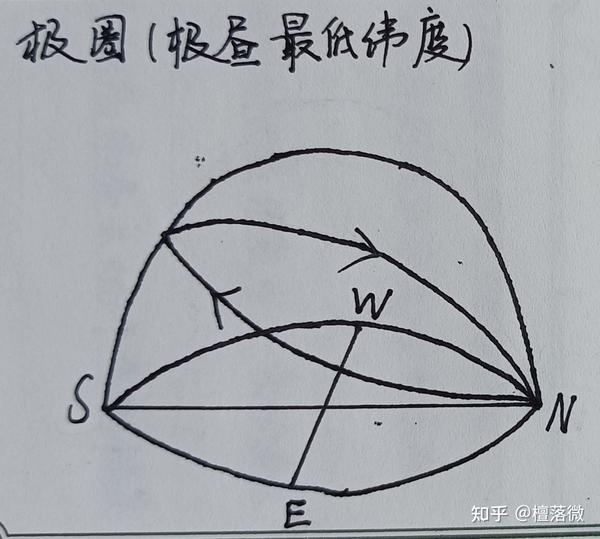 极圈(极昼最低纬度)
W
S
N
E
知乎 @檀落微